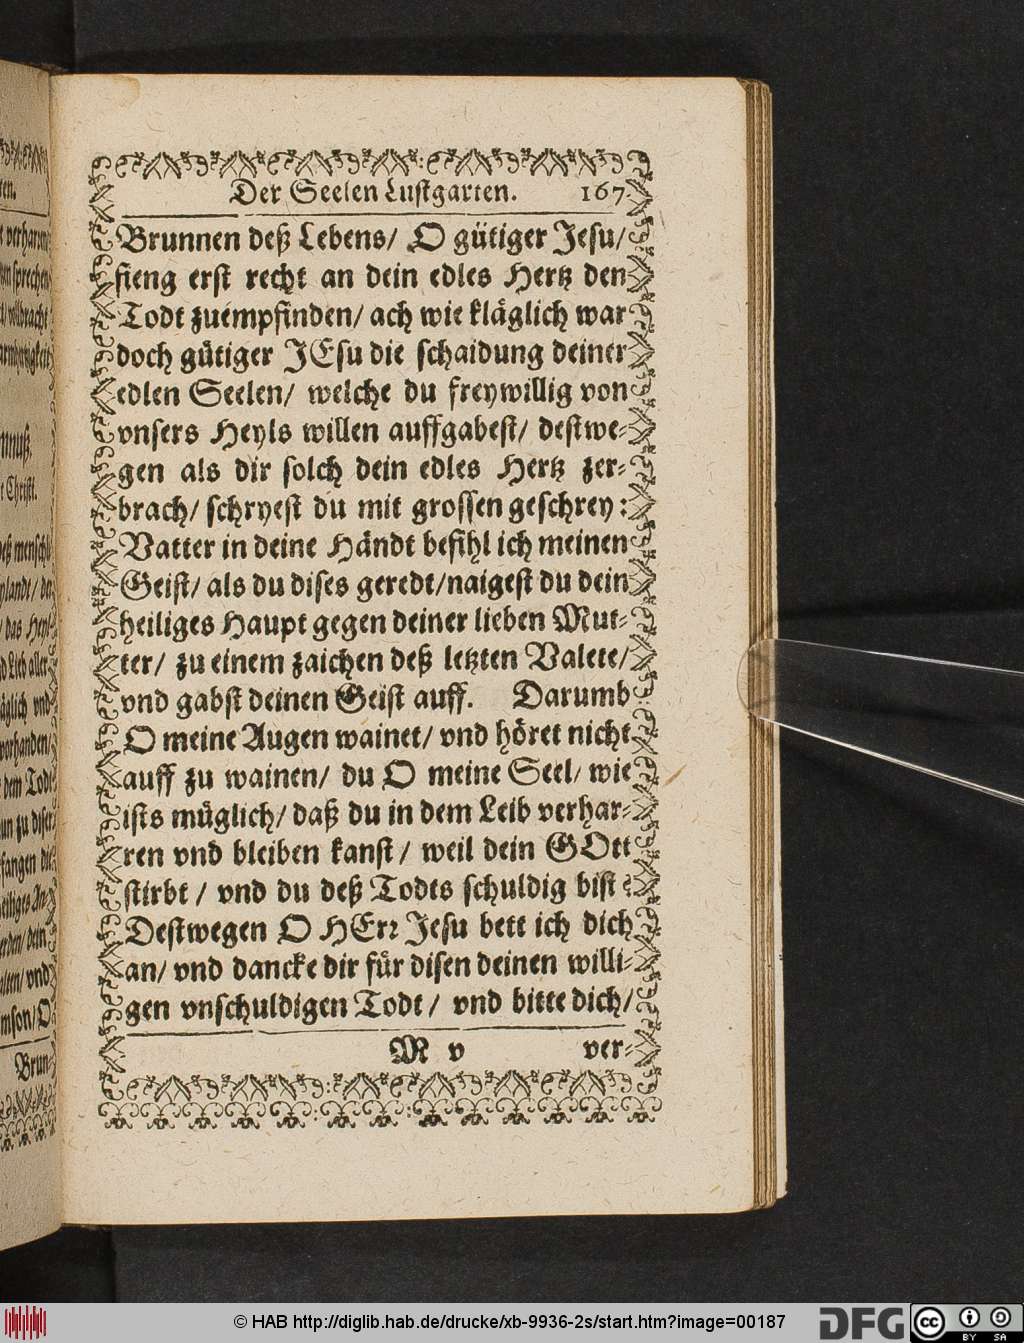 Der Seelen Lustgarten. 167
Brunnen deß Lebens/ O gütiger Jesu/
fieng erst recht an dein edles Hertz den
Todt zuempfinden/ ach wie kläglich war
doch gütiger JEsu die schaidung deiner
edlen Seelen/ welche du freywillig von
vnsers Heyls willen auffgabest/ destwe-
gen als dir solch dein edles Hertz zer-
brach/ schryest du mit grossen geschrey:
Vatter in deine Händt befihl ich meinen
Geist/ als du dises geredt/ naigest du dein
heiliges Haupt gegen deiner lieben Mut-
ter/ zu einem zaichen deß letzten Valete/
vnd gabst deinen Geist auff. Darumb
O meine Augen wainet/ vnd höret nicht
auff zu wainen/ du O meine Seel/ wie
ists müglich/ daß du in dem Leib verhar-
ren vnd bleiben kanst/ weil dein GOtt
stirbt/ vnd du deß Todts schuldig bist?
Destwegen O HErr Jesu bett ich dich
an/ vnd dancke dir für disen deinen willi-
gen vnschuldigen Todt/ vnd bitte dich/
M v ver-
ten.
verharren
sprechen
deß menschl
das Heyl
Lieb aller
vnd
vorhanden/
dem Todt
zu diser
fangen
dein
vnd
O
Brun-
© HAB http://diglib.hab.de/drucke/xb-9936-2s/start.htm?image=00187
DFG
cc
BY SA